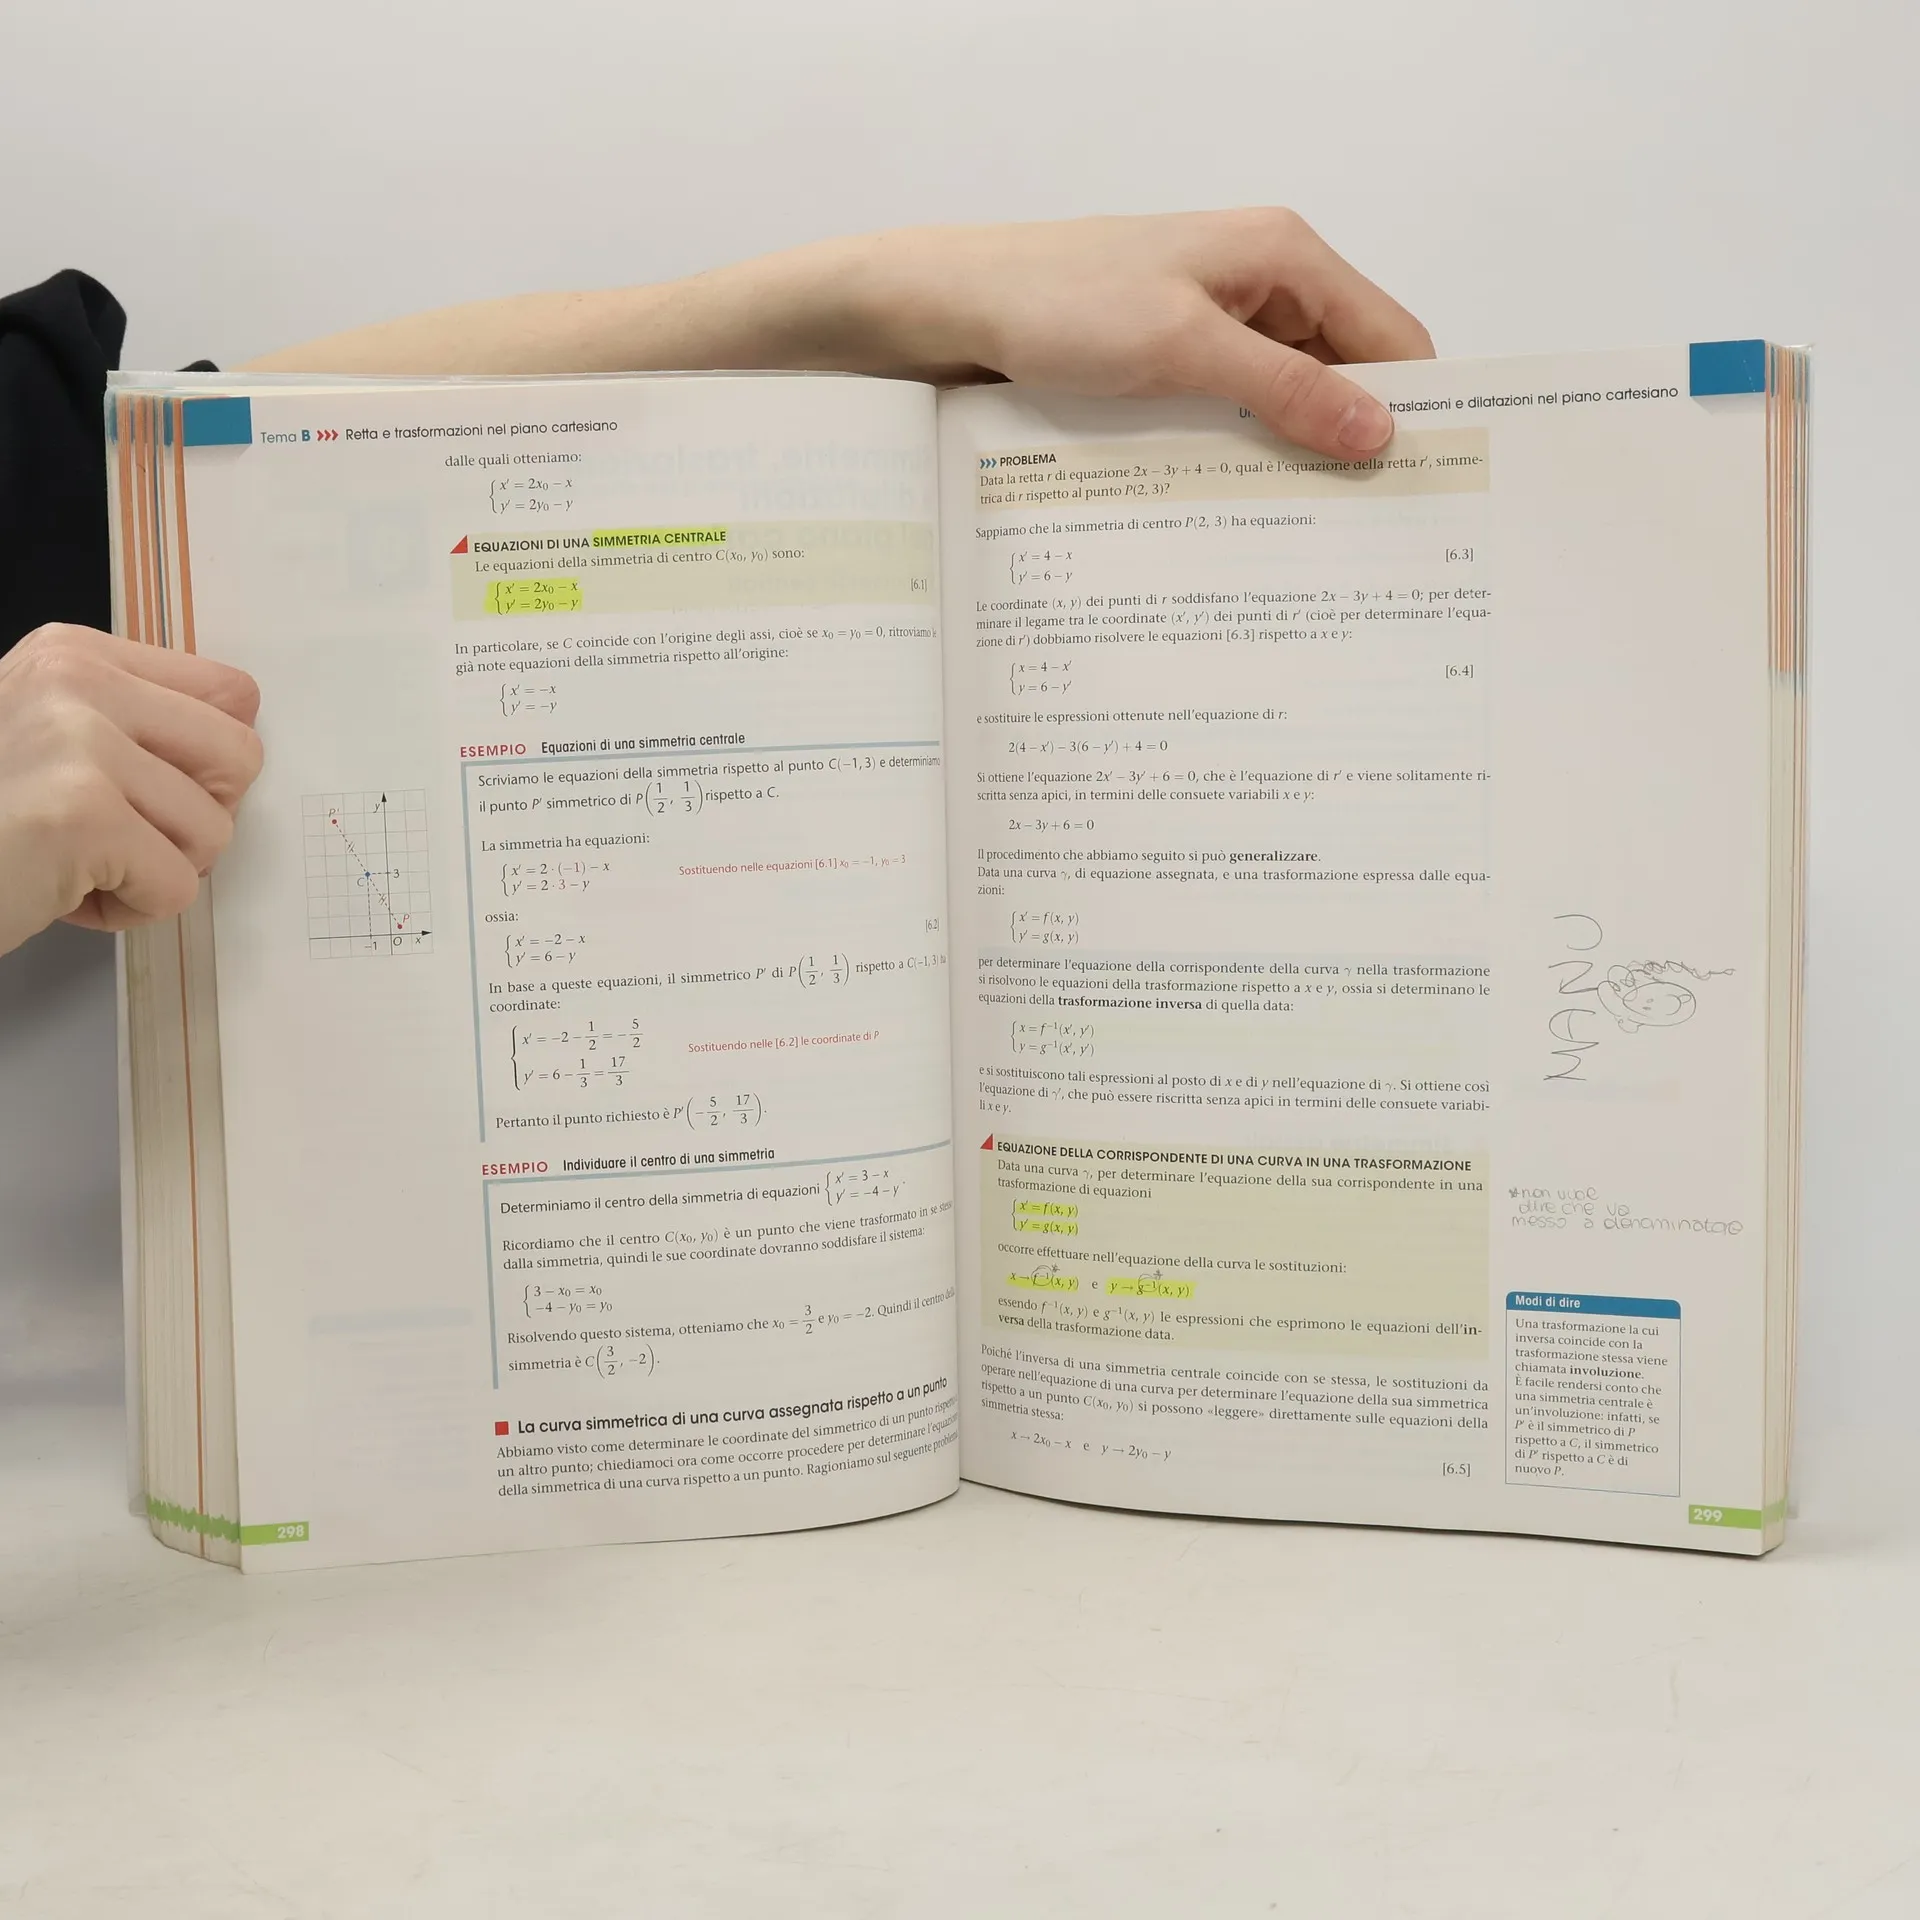 Tema B >>> Retta e trasformazioni nel piano cartesiano
dalle quali otteniamo:
x' = 2x₀ − x
y' = 2y₀ − y
EQUAZIONI DI UNA SIMMETRIA CENTRALE
Le equazioni della simmetria di centro C(x₀, y₀) sono:
x' = 2x₀ − x
y' = 2y₀ − y
[6.1]
In particolare, se C coincide con l'origine degli assi, cioè se x₀ = y₀ = 0, ritroviamo le
già note equazioni della simmetria rispetto all'origine:
x' = −x
y' = −y
ESEMPIO Equazioni di una simmetria centrale
Scriviamo le equazioni della simmetria rispetto al punto C(−1, 3) e determiniamo
il punto P' simmetrico di P(1/2, 1/3) rispetto a C.
La simmetria ha equazioni:
x' = 2 · (−1) − x
y' = 2 · 3 − y
Sostituendo nelle equazioni [6.1] x₀ = −1, y₀ = 3
ossia:
x' = −2 − x
y' = 6 − y
[6.2]
In base a queste equazioni, il simmetrico P' di P(1/2, 1/3) rispetto a C(−1, 3) ha
coordinate:
x' = −2 − 1/2 = −5/2
y' = 6 − 1/3 = 17/3
Sostituendo nelle [6.2] le coordinate di P
Pertanto il punto richiesto è P'(−5/2, 17/3).
P'
y
C
3
P
−1
O
x
ESEMPIO Individuare il centro di una simmetria
Determiniamo il centro della simmetria di equazioni x' = 3 − x
y' = −4 − y.
Ricordiamo che il centro C(x₀, y₀) è un punto che viene trasformato in se stesso
dalla simmetria, quindi le sue coordinate dovranno soddisfare il sistema:
3 − x₀ = x₀
−4 − y₀ = y₀
Risolvendo questo sistema, otteniamo che x₀ = 3/2 e y₀ = −2. Quindi il centro della
simmetria è C(3/2, −2).
La curva simmetrica di una curva assegnata rispetto a un punto
Abbiamo visto come determinare le coordinate del simmetrico di un punto rispetto
un altro punto; chiediamoci ora come occorre procedere per determinare l'equazione
della simmetrica di una curva rispetto a un punto. Ragioniamo sul seguente problema
298
traslazioni e dilatazioni nel piano cartesiano
>>> PROBLEMA
Data la retta r di equazione 2x − 3y + 4 = 0, qual è l'equazione della retta r', simme-
trica di r rispetto al punto P(2, 3)?
Sappiamo che la simmetria di centro P(2, 3) ha equazioni:
x' = 4 − x
y' = 6 − y
[6.3]
Le coordinate (x, y) dei punti di r soddisfano l'equazione 2x − 3y + 4 = 0; per deter-
minare il legame tra le coordinate (x', y') dei punti di r' (cioè per determinare l'equa-
zione di r') dobbiamo risolvere le equazioni [6.3] rispetto a x e y:
x = 4 − x'
y = 6 − y'
[6.4]
e sostituire le espressioni ottenute nell'equazione di r:
2(4 − x') − 3(6 − y') + 4 = 0
Si ottiene l'equazione 2x' − 3y' + 6 = 0, che è l'equazione di r' e viene solitamente ri-
scritta senza apici, in termini delle consuete variabili x e y:
2x − 3y + 6 = 0
Il procedimento che abbiamo seguito si può generalizzare.
Data una curva γ, di equazione assegnata, e una trasformazione espressa dalle equa-
zioni:
x' = f(x, y)
y' = g(x, y)
per determinare l'equazione della corrispondente della curva γ nella trasformazione
si risolvono le equazioni della trasformazione rispetto a x e y, ossia si determinano le
equazioni della trasformazione inversa di quella data:
x = f⁻¹(x', y')
y = g⁻¹(x', y')
e si sostituiscono tali espressioni al posto di x e di y nell'equazione di γ. Si ottiene così
l'equazione di γ', che può essere riscritta senza apici in termini delle consuete variabi-
li x e y.
EQUAZIONE DELLA CORRISPONDENTE DI UNA CURVA IN UNA TRASFORMAZIONE
Data una curva γ, per determinare l'equazione della sua corrispondente in una
trasformazione di equazioni
x' = f(x, y)
y' = g(x, y)
occorre effettuare nell'equazione della curva le sostituzioni:
x → f⁻¹(x, y) e y → g⁻¹(x, y)
essendo f⁻¹(x, y) e g⁻¹(x, y) le espressioni che esprimono le equazioni dell'in-
versa della trasformazione data.
Poiché l'inversa di una simmetria centrale coincide con se stessa, le sostituzioni da
operare nell'equazione di una curva per determinare l'equazione della sua simmetrica
rispetto a un punto C(x₀, y₀) si possono «leggere» direttamente sulle equazioni della
simmetria stessa:
x → 2x₀ − x e y → 2y₀ − y
[6.5]
*non vuole
dire che va
messo a denominatore
Modi di dire
Una trasformazione la cui
inversa coincide con la
trasformazione stessa viene
chiamata involuzione.
È facile rendersi conto che
una simmetria centrale è
un'involuzione: infatti, se
P' è il simmetrico di P
rispetto a C, il simmetrico
di P' rispetto a C è di
nuovo P.
299